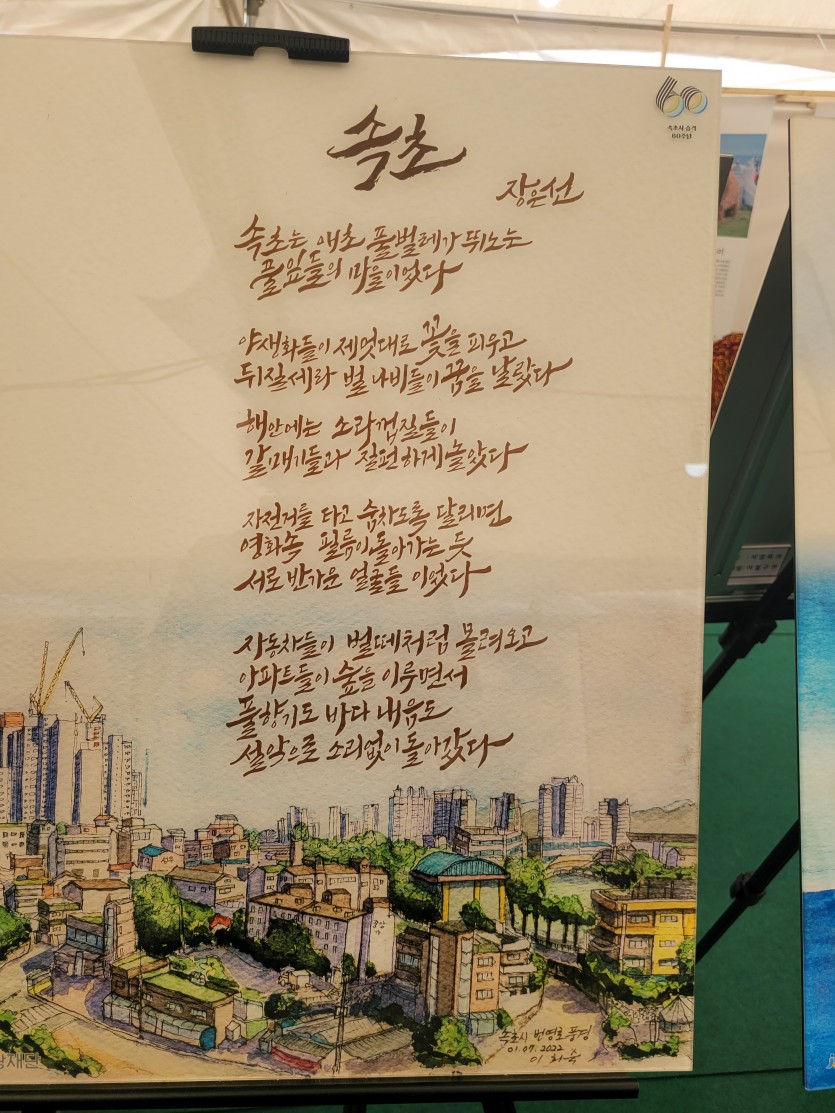 60
속초시 승격
60주년
속초
장은선
속초는 애초 풀벌레가 뛰노는
풀잎들의 마을이었다
야생화들이 제멋대로 꽃을 피우고
뒤질세라 벌 나비들이 꿈을 날랐다
해안에는 소라껍질들이
갈매기들과 질펀하게 놀았다
자전거를 타고 숨차도록 달리면
영화속 필름이 돌아가는 듯
서로 반가운 얼굴들 이었다
자동차들이 벌떼처럼 몰려오고
아파트들이 숲을 이루면서
풀향기도 바다 내음도
설악으로 소리없이 돌아갔다
속초시 번영로 풍경
01.07.2022